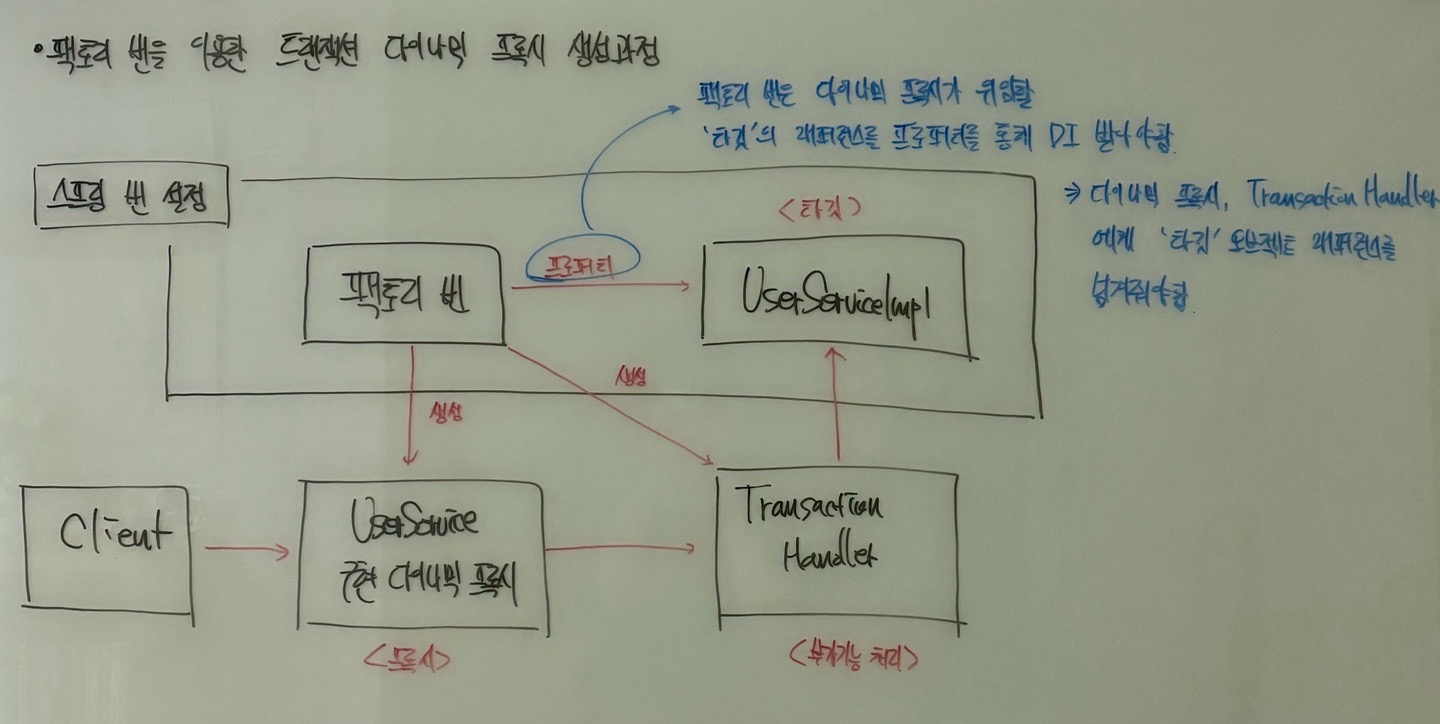 • 팩토리 빈을 이용한 트랜잭션 다이나믹 프록시 생성과정
팩토리 빈은 다이나믹 프록시가 위임할
'타깃'의 래퍼런스를 프로퍼티를 통해 DI 받아야함.
⇒ 다이나믹 프록시, Transaction Handler
에게 '타깃' 오브젝트 래퍼런스를
넘겨줘야함.
스프링 빈 설정
<타깃>
팩토리 빈
프로퍼티
UserServiceImpl
생성
생성
Client
UserService
구현 다이나믹 프록시
<프록시>
Transaction
Handler
<부가기능 처리>